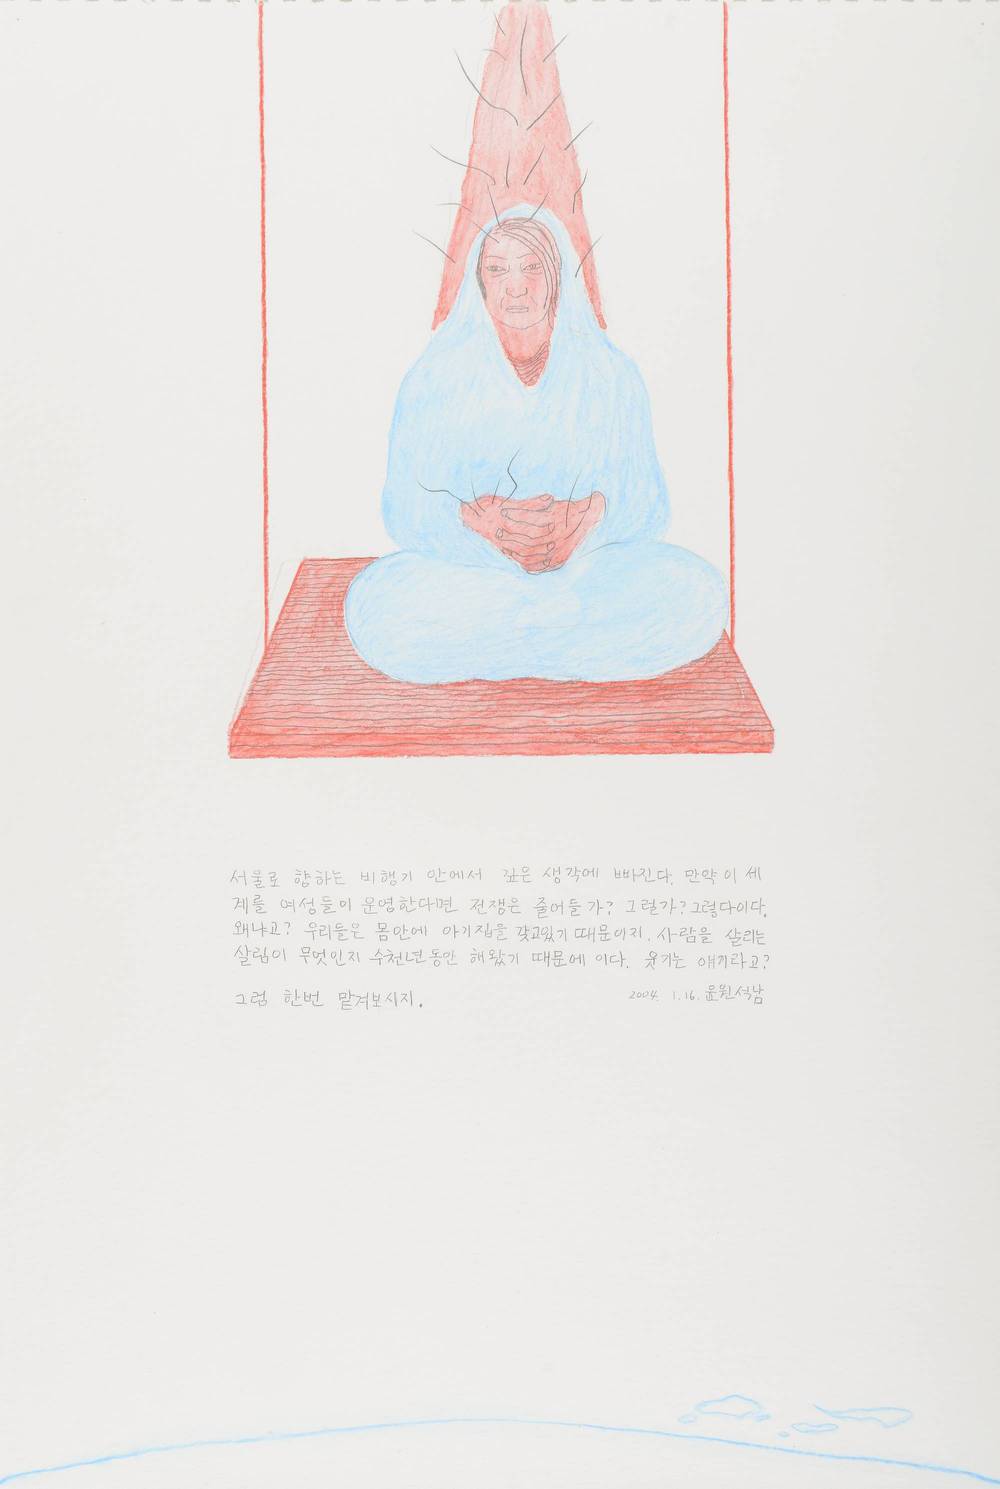 서울로 향하는 비행기 안에서 깊은 생각에 빠진다. 만약 이 세
계를 여성들이 운영한다면 전쟁은 줄어들가? 그럴가? 그렇다이다.
왜냐고? 우리들은 몸안에 아기집을 갖고있기 때문이지. 사람을 살리는
살림이 무엇인지 수천년동안 해왔기 때문에 이다. 웃기는 얘기라고?
그럼 한번 맡겨보시지.
2004. 1. 16. 윤석남